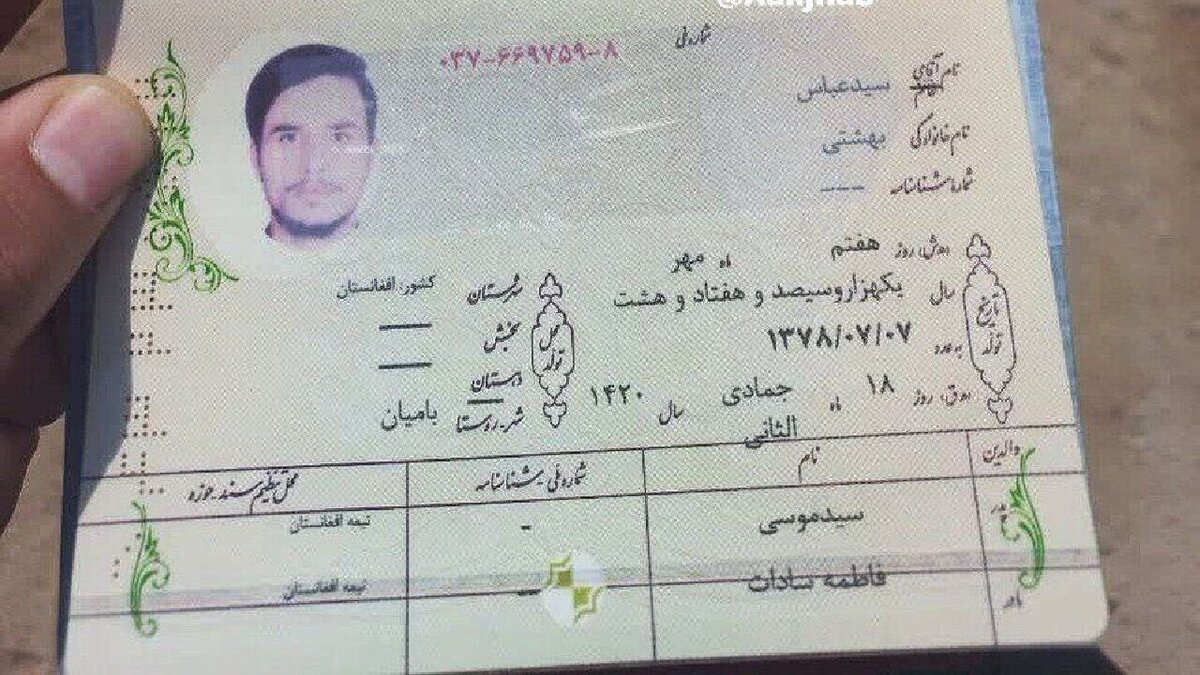 شماره ملی ۰۳۷-۶۶۹۷۵۹-۸
نام آقای سیدعباس
نام خانوادگی بهشتی
شماره شناسنامه ---
روز هفتم ماه مهر
سال یکهزاروسیصد و هفتاد و هشت
به عدد ۱۳۷۸/۰۷/۰۷
روز ۱۸ ماه جمادی الثانی سال ۱۴۲۰
تاریخ تولد
محل تولد
شهرستان کشور، افغانستان
بخش —
دهستان —
شهر-روستا بامیان
والدین نام شماره ملی-شناسنامه محل تنظیم سند-حوزه
پدر سیدموسی - تبعه افغانستان
مادر فاطمه سادات - تبعه افغانستان